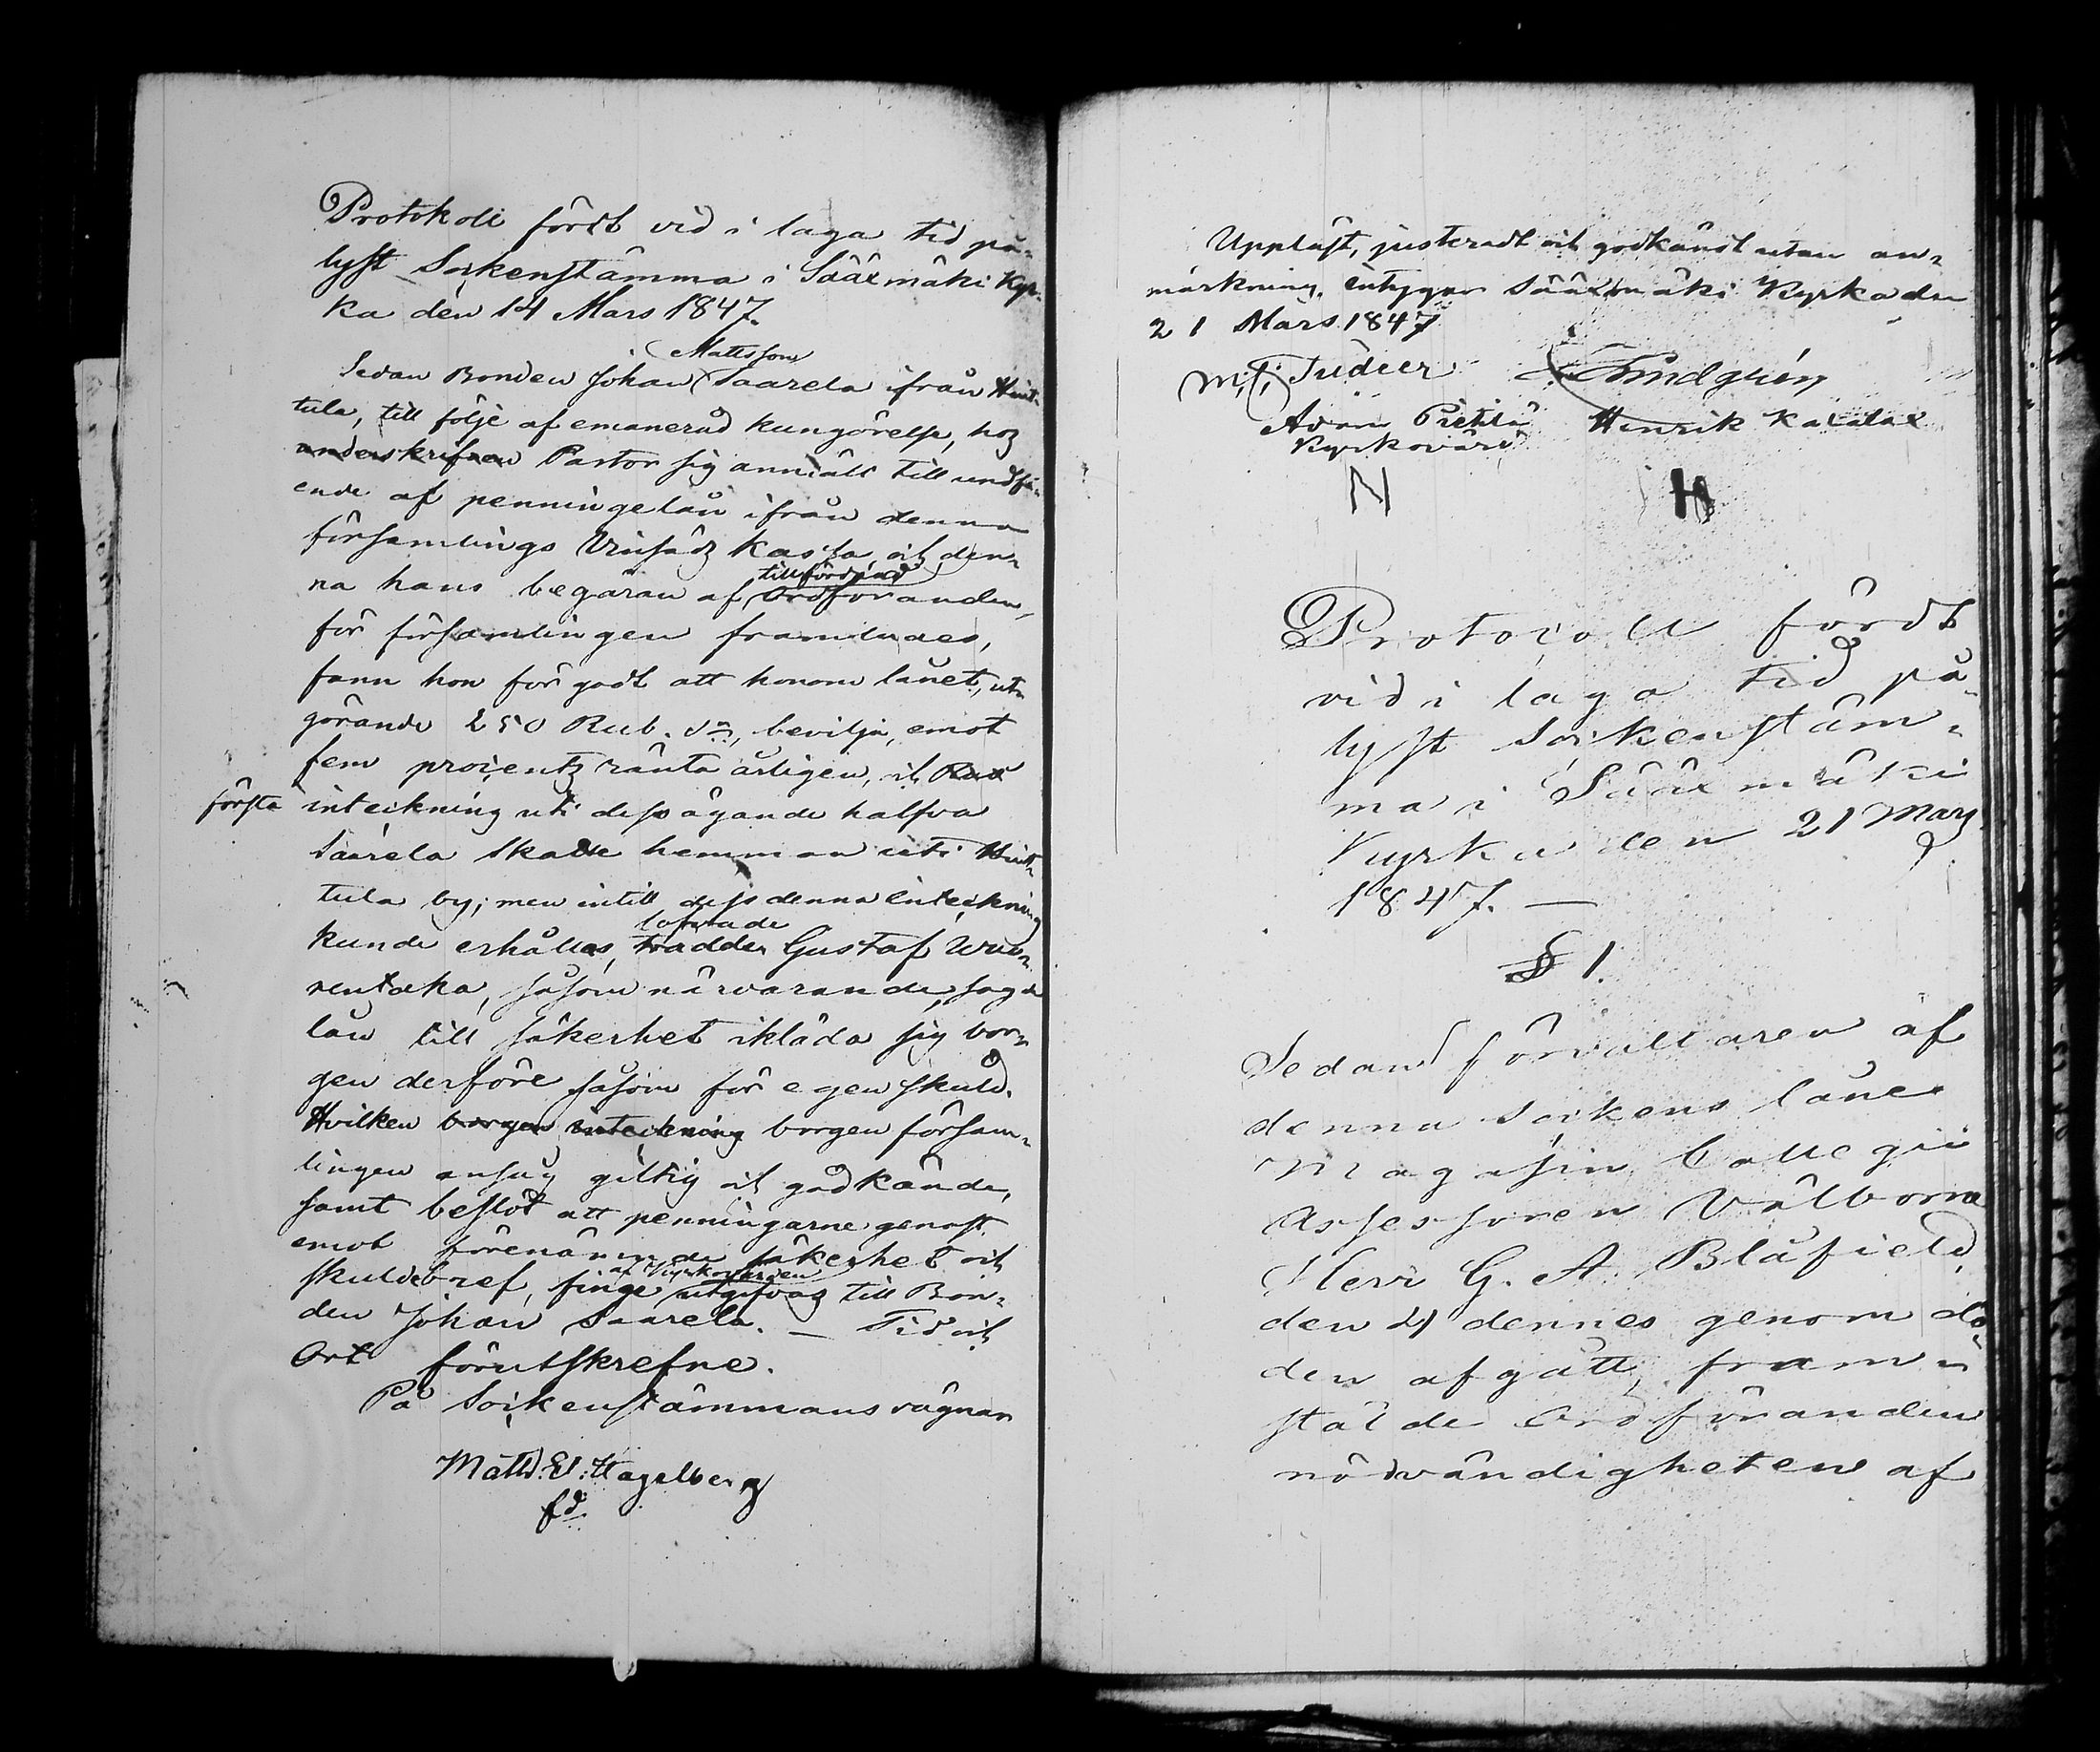 Protokoll fördt vid i laga tid på-
lyst Sockenstämma i Sääxmäki Kyr-
ka den 14 Mars 1847.
Mattsson
Sedan Bonden Johan Saarela ifrån Huit-
tula, till följe af emanerad kungörelse, hos
underskrifven Pastor sig anmält till undfå-
ende af penningelån ifrån denna
församlings kassa, och den-
tillförordnad
na hans begäran af Ordföranden,
för församlingen framlades,
fann hon för godt att honom lånet, ut-
görande 250 Rub. Sr, bevilja, emot
fem procents ränta årligen, och
första inteckning uti dess ägande halfva
Saarela Skatte hemman uti Huit-
tula by; men intill dess denna inteckning
lofvade
kunde erhållas, Gustaf Wuo-
rentaka, såsom närvarande, sagde
lån till säkerhet ikläda sig bor-
gen derföre såsom för egen skuld.
Hvilken borgen inteckning borgen försam-
lingen ansåg giltig och godkände,
samt beslöt att penningarne genast
emot förenämnde säkerhet och
af Kyrkovärden
skuldebref, finge utgifvas till Bon-
den Johan Saarela. — Tid och
Ort förutskrefne.
På Sockenstämmans vägnar
Math. El. Hagelberg
fd.
Uppläst, justeradt och godkändt utan an-
märkning, intygar Sääxmäki Kyrka den
21 Mars 1847
M. T. Tudeer Lindgrén
Pietilä Henrik
Kyrkovärd
N H
Protocoll fördt
vid i laga tid på-
lyst Sockenstäm-
ma i Sääxmäki
Kyrka den 21 Mars
1847. —
§ 1.
Sedan förvaltaren af
denna Sockens låne
Magasin Collegii
Assessoren Välborne
Herr G. A. Blåfield,
den 4 dennes genom dö-
den afgått, fram-
stälde Ordföranden
nödvändigheten af